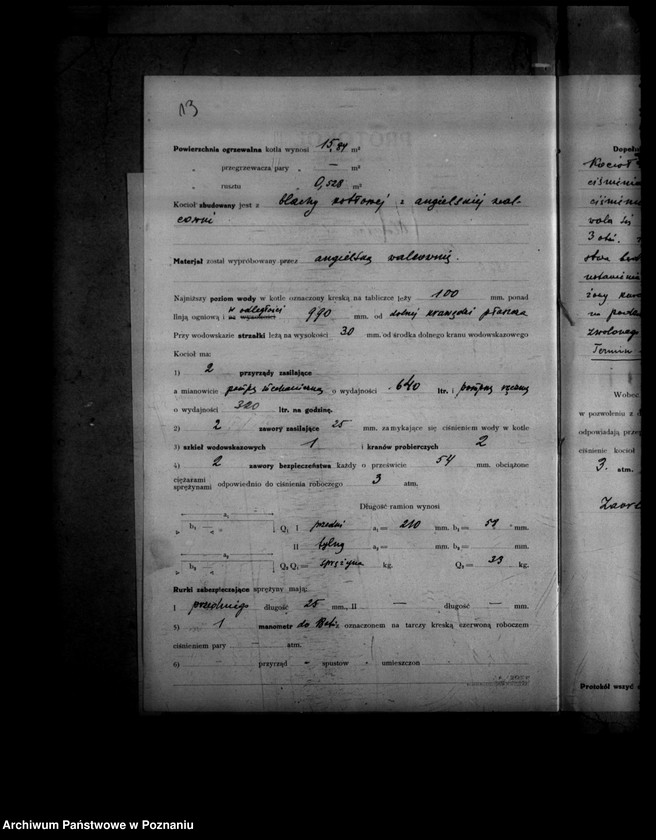 13
Powierzchnia ogrzewalna kotła wynosi 15,84 m²
„ przegrzewacza pary „ — m²
„ rusztu „ 0,528 m²
Kocioł zbudowany jest z blachy kotłowej z angielskiej wal-
cowni
Materjał został wypróbowany przez angielską walcownię.
Najniższy poziom wody w kotle oznaczony kreską na tabliczce leży 100 mm. ponad
linją ogniową i w odległości na wysokości 990 mm. od dolnej krawędzi płaszcza
Przy wodowskazie strzałki leżą na wysokości 30 mm. od środka dolnego kranu wodowskazowego
Kocioł ma:
1) 2 przyrządy zasilające
a mianowicie pompę mechaniczną o wydajności 640 ltr. i pompę ręczną
o wydajności 320 ltr. na godzinę.
2) 2 zawory zasilające 25 mm. zamykające się ciśnieniem wody w kotle
3) szkieł wodowskazowych 1 i kranów probierczych 2
4) 2 zawory bezpieczeństwa każdy o prześwicie 54 mm. obciążone
ciężarami
sprężynami odpowiednio do ciśnienia roboczego 3 atm.
Długość ramion wynosi
a₁ b₁ Q₁ I przedni a₁ = 210 mm. b₁ = 59 mm.
II tylny a₂ = mm. b₂ = mm.
a₂ b₂ Q₂ Q₁ = sprężyna kg. Q₂ = 33 kg.
Rurki zabezpieczające sprężyny mają:
I przedniego długość 25 mm., II — długość — mm.
5) 1 manometr do oznaczonem na tarczy kreską czerwoną roboczem
ciśnieniem pary atm.
6) przyrząd spustow umieszczon
Dopeł
Kocioł
ciśnienia
3 atm.
Termin
Wobec
w pozwoleniu z d
odpowiadają przep
ciśnienie kocioł
3. atm.
Protokół wszyć
Archiwum Państwowe w Poznaniu